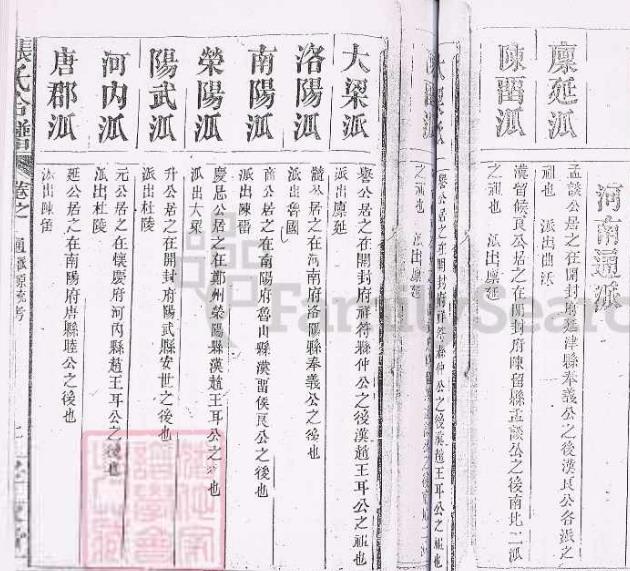 河南通派
廩延派
孟談公居之在開封府延津縣奉義公之後漢良公各派之
祖也 派出曲沃
陳畱派
漢畱候良公居之在開封府陳留縣孟談公之後南北二派
之祖也 派出廩延
大梁派
譽公居之在開封府祥符縣仲公之後漢趙王耳公之祖也
派出廩延
洛陽派
公居之在河南府洛陽縣奉義公之後也
派出魯國
南陽派
公居之在南陽府魯山縣漢畱侯良公之後也
派出陳畱
滎陽派
慶忌公居之在鄭州滎陽縣漢趙王耳公之後也
派出大梁
陽武派
升公居之在開封府陽武縣安世之後也
派出杜陵
河内派
元公居之在懷慶府河内縣趙王耳公之後也
派出杜陵
唐郡派
延公居之在南陽府唐縣睦公之後也
派出陳留
張氏合譜 卷之一 通派源流考
FamilySearch